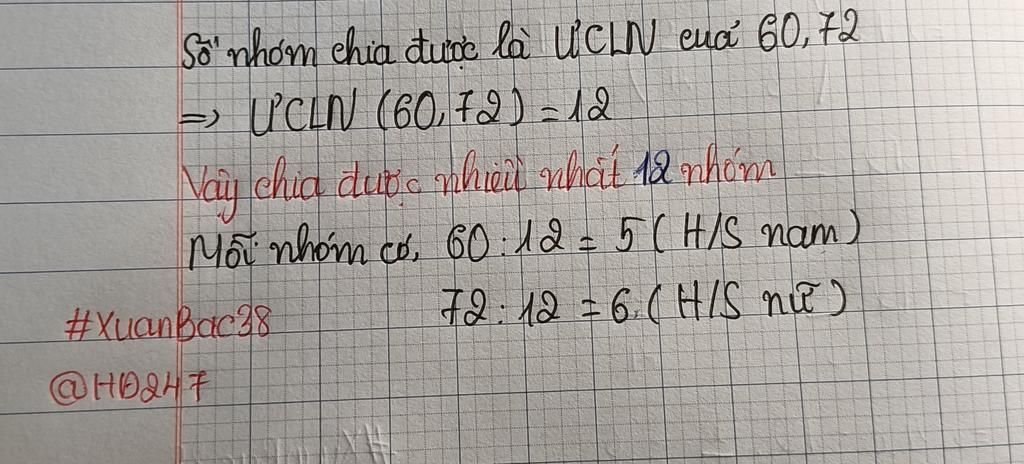 Số nhóm chia được là ƯCLN của 60,72
=> ƯCLN (60,72) = 12
Vậy chia được nhiều nhất 12 nhóm
Mỗi nhóm có, 60 : 12 = 5 ( H/S nam )
72 : 12 = 6 ( H/S nữ )
#XuanBac38
@HĐ247